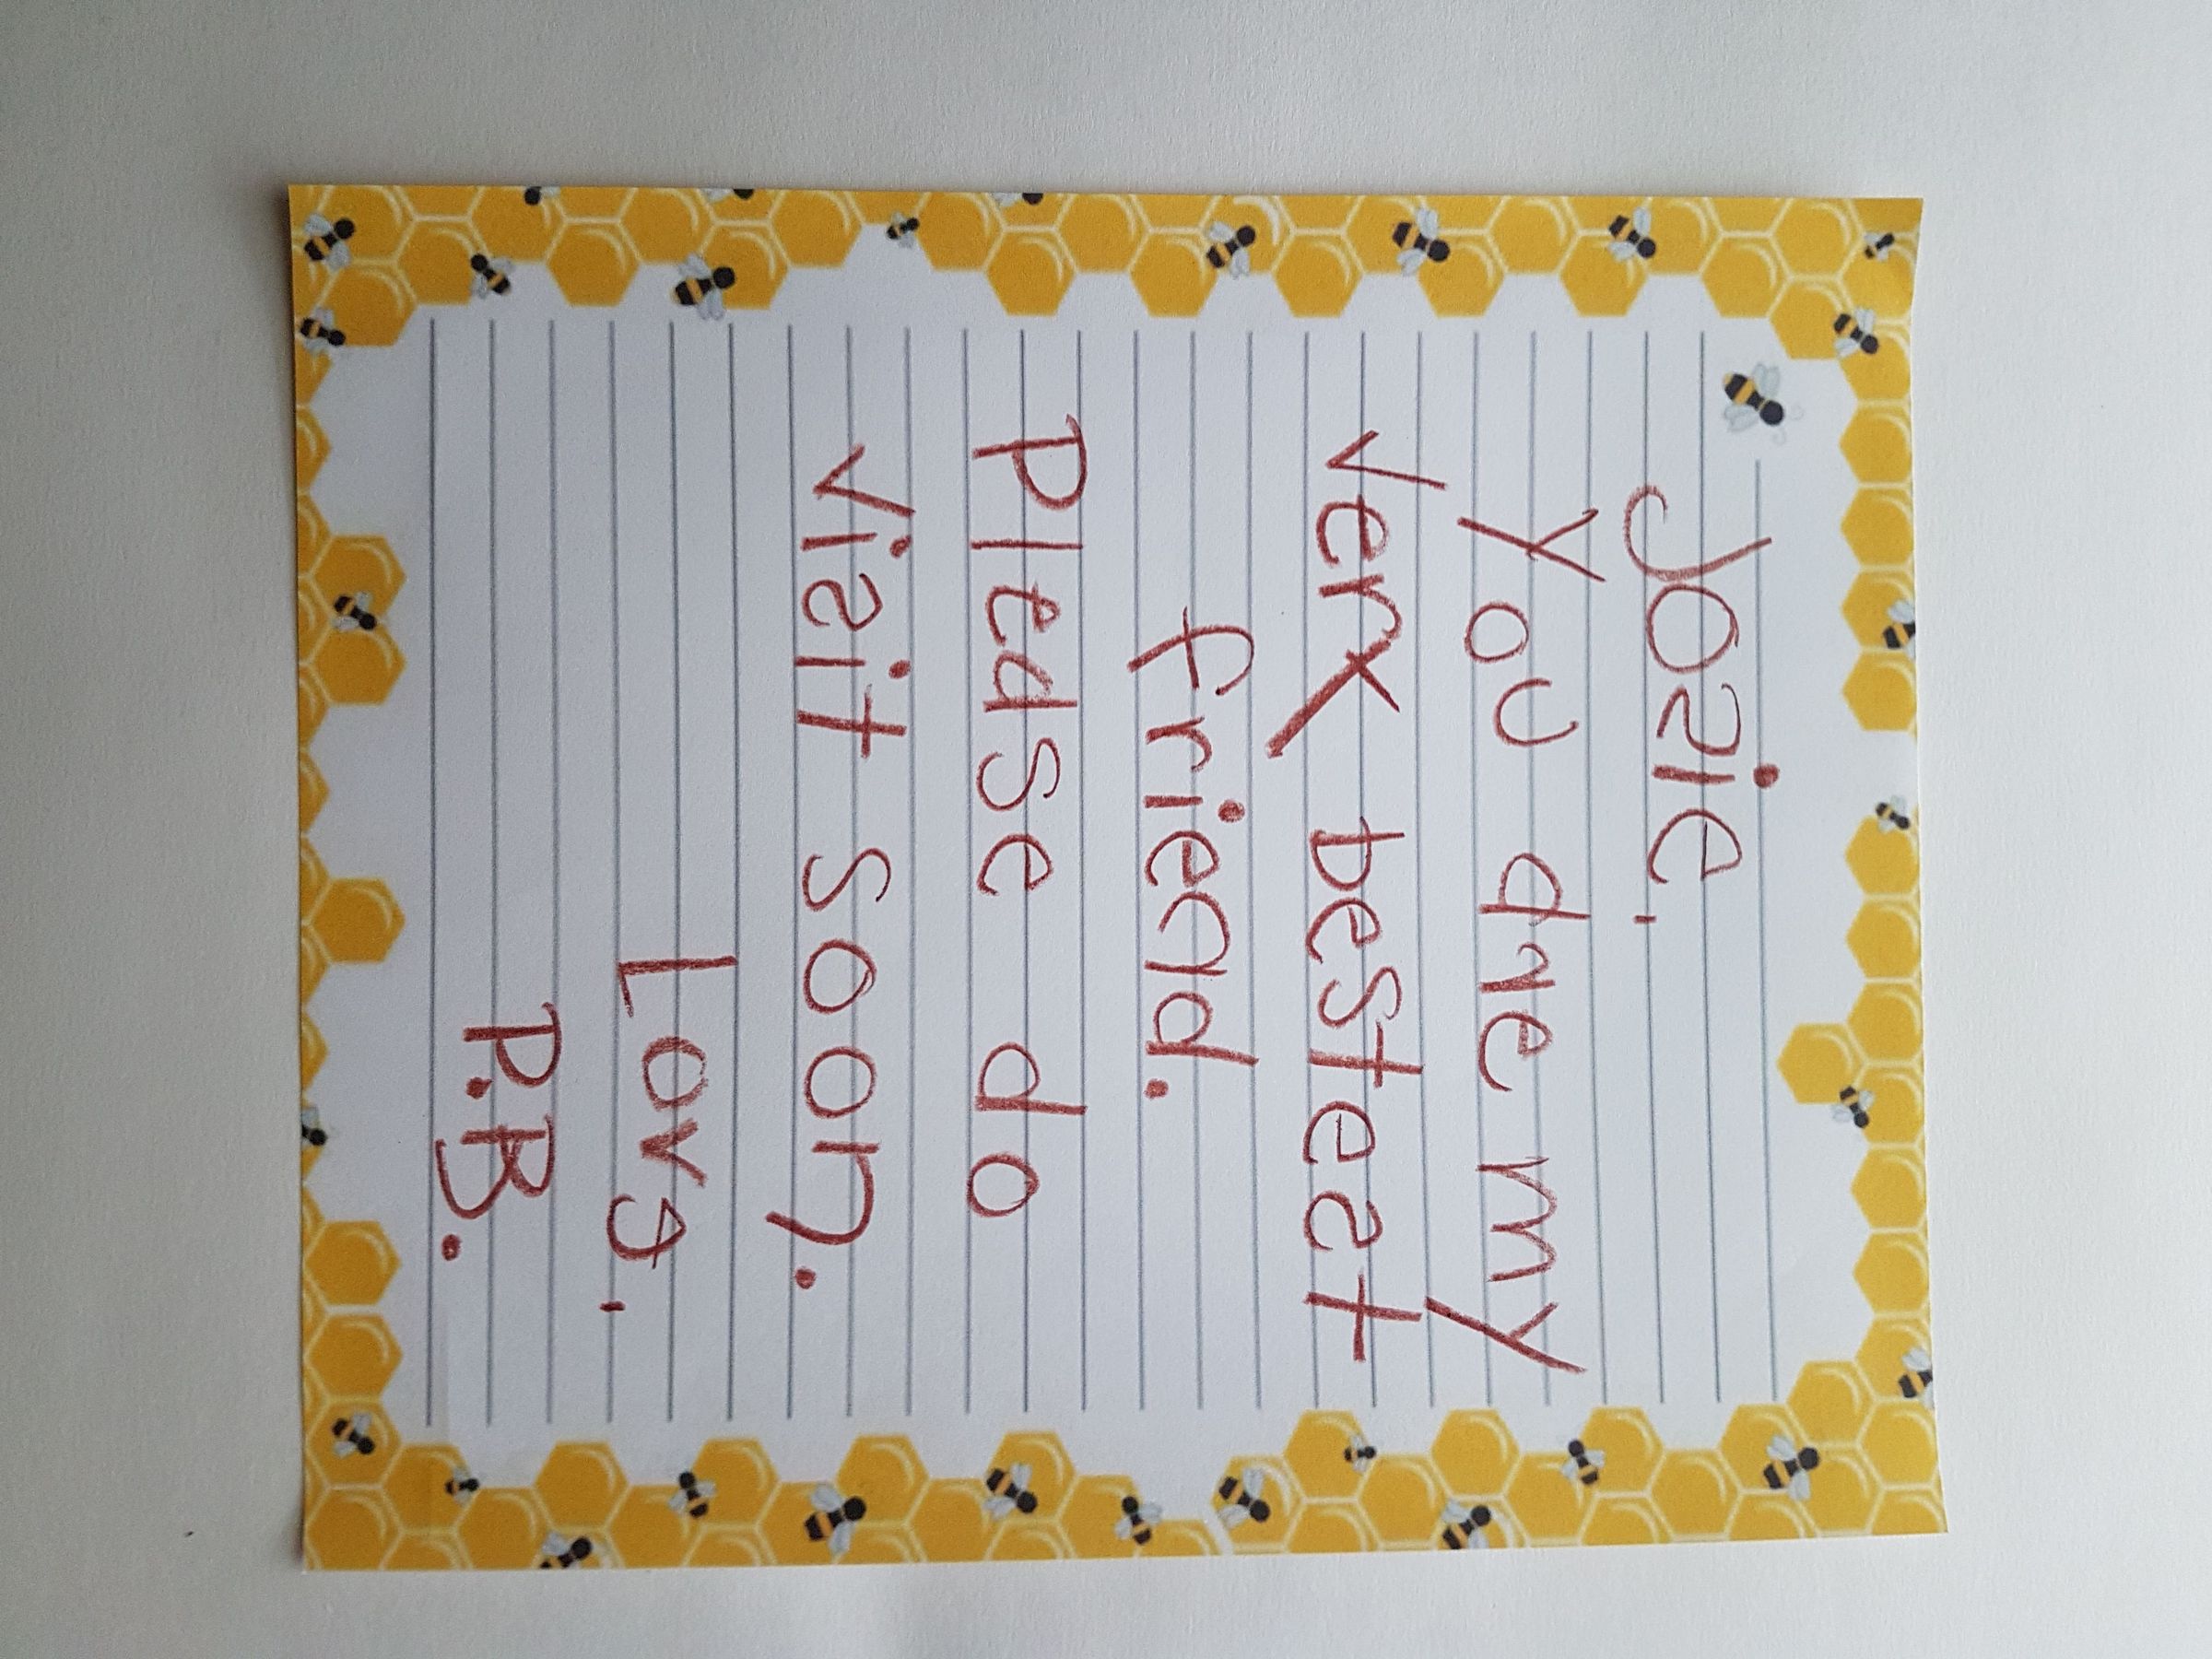 Jozie,
You are my
very bestest
friend.
Please do
visit soon.
Love,
P.B.